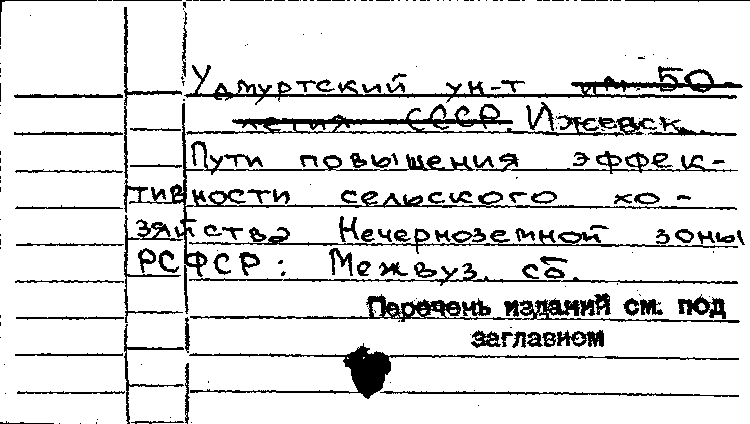 Удмуртский ун-т им. 50-
летия СССР. Ижевск.
Пути повышения эффек-
тивности сельского хо-
зяйства Нечерноземной зоны
РСФСР: Межвуз. сб.
Перечень изданий см. под
заглавном